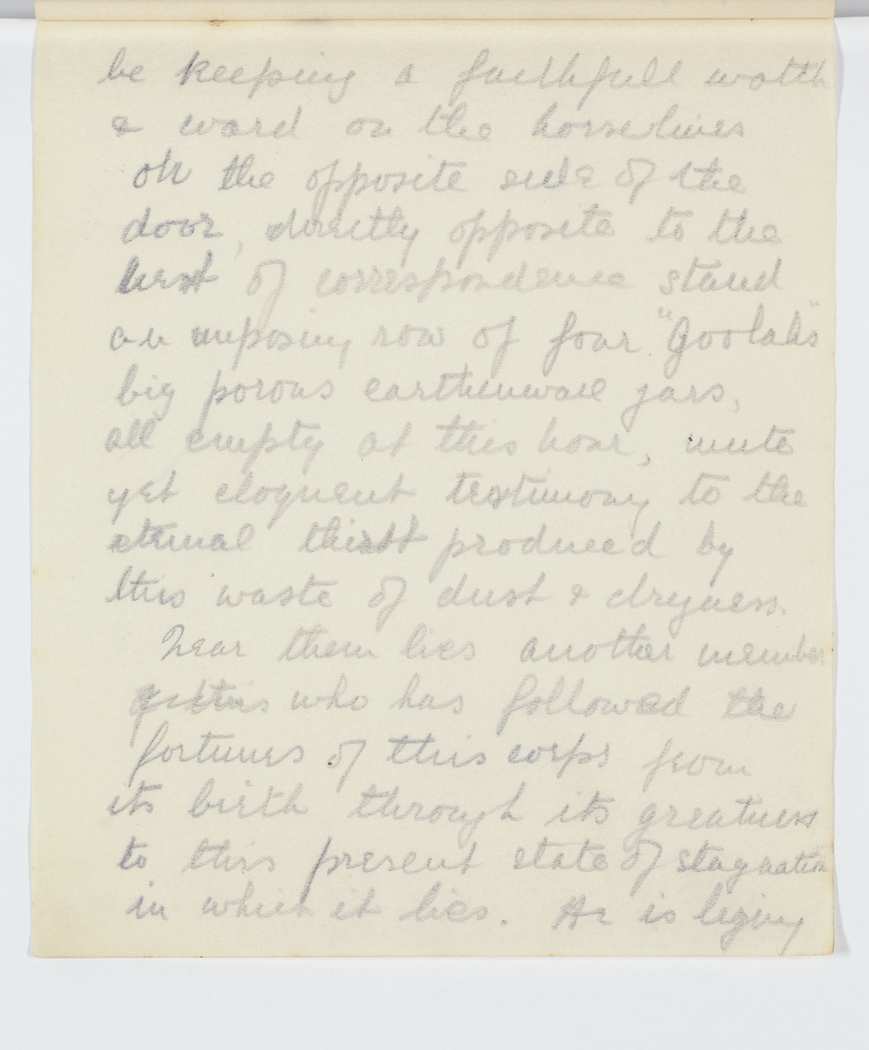 be keeping a faithfull watch
& ward on the horselines
on the opposite side of the
door, directly opposite to the
best of correspondence stand
an imposing row of four "Goolahs"
big porous earthenware jars,
all empty at this hour, mute
yet eloquent testimony to the
eternal thirst produced by
this waste of dust & dryness.
Near them lies another member
who has followed the
fortunes of this corps from
its birth through its greatness
to this present state of stagnation
in which it lies. He is lying